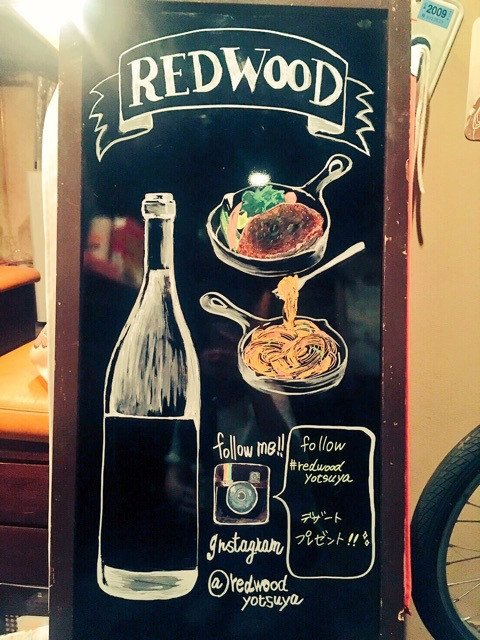 2009
REDWOOD
follow me!!
Instagram
@redwood
yotsuya
follow
#redwood
yotsuya
デザート
プレゼント!!